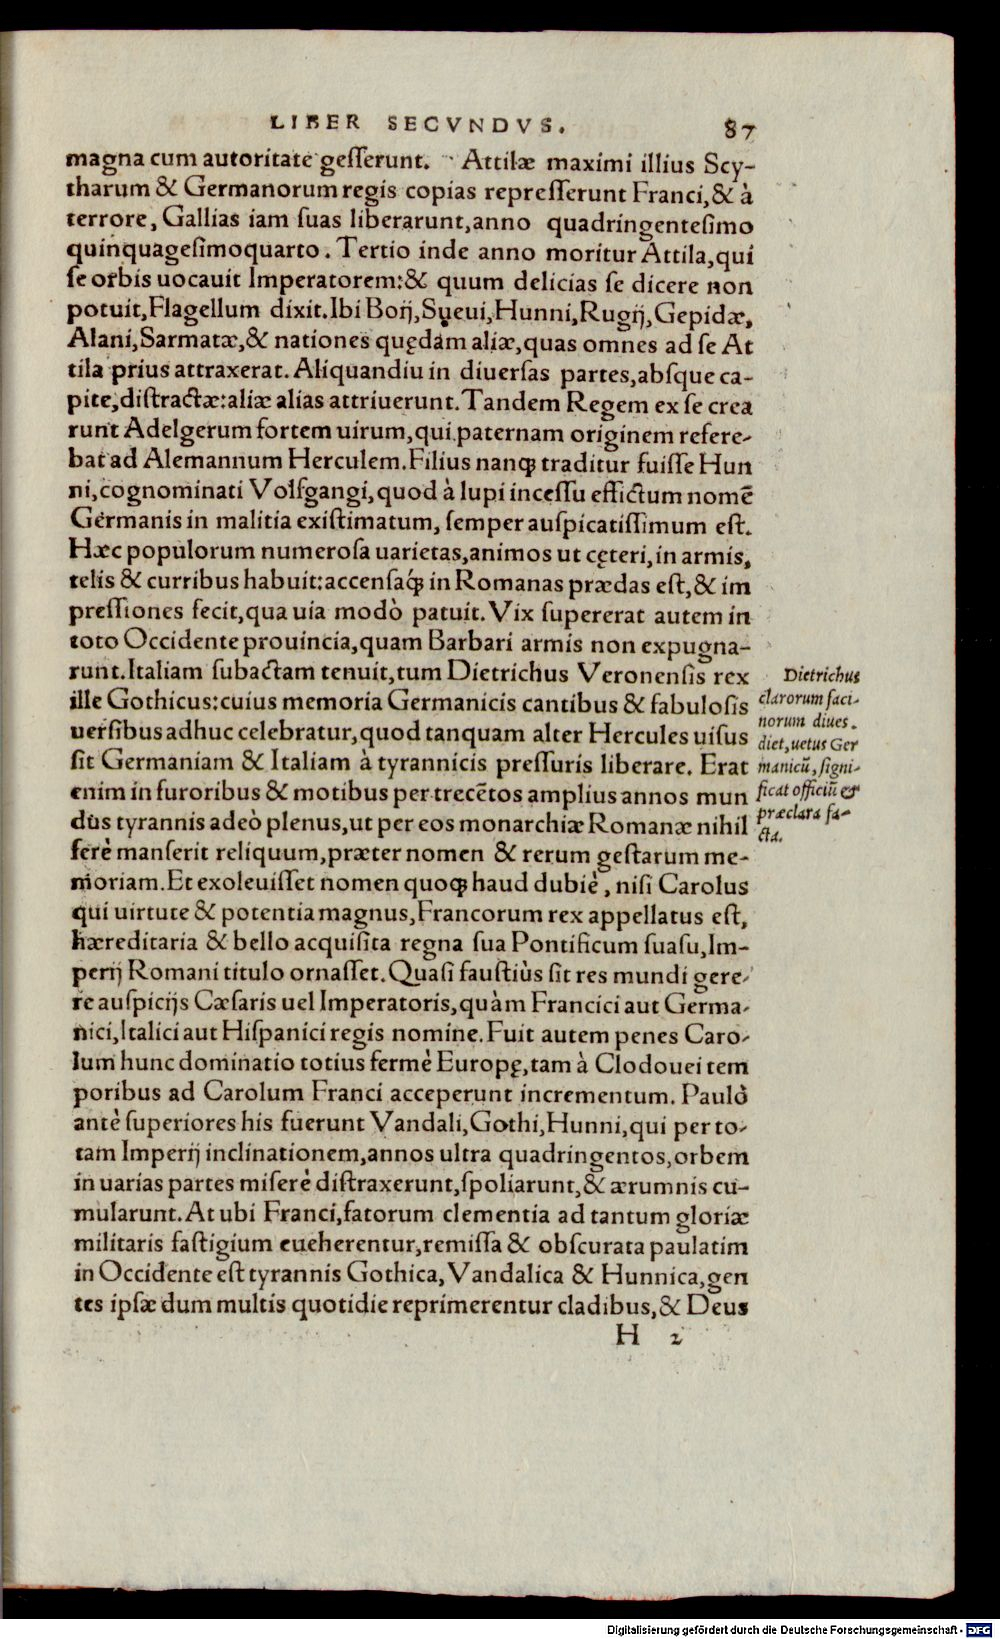 LIBER SECVNDVS. 87
magna cum autoritate gesserunt. Attilæ maximi illius Scy-
tharum & Germanorum regis copias represserunt Franci, & à
terrore, Gallias iam suas liberarunt, anno quadringentesimo
quinquagesimoquarto. Tertio inde anno moritur Attila, qui
se orbis uocauit Imperatorem: & quum delicias se dicere non
potuit, Flagellum dixit. Ibi Boij, Sueui, Hunni, Rugij, Gepidæ,
Alani, Sarmatæ, & nationes quędam aliæ, quas omnes ad se At
tila prius attraxerat. Aliquandiu in diuersas partes, absque ca-
pite, distractæ: aliæ alias attriuerunt. Tandem Regem ex se crea
runt Adelgerum fortem uirum, qui paternam originem refere-
bat ad Alemannum Herculem. Filius nanq̃ traditur fuisse Hun
ni, cognominati Volfgangi, quod à lupi incessu effictum nomẽ
Germanis in malitia existimatum, semper auspicatissimum est.
Hæc populorum numerosa uarietas, animos ut cęteri, in armis,
telis & curribus habuit: accensaq́ in Romanas prædas est, & im
pressiones fecit, qua uia modò patuit. Vix supererat autem in
toto Occidente prouincia, quam Barbari armis non expugna-
runt. Italiam subactam tenuit, tum Dietrichus Veronensis rex
ille Gothicus: cuius memoria Germanicis cantibus & fabulosis
uersibus adhuc celebratur, quod tanquam alter Hercules uisus
sit Germaniam & Italiam à tyrannicis pressuris liberare. Erat
enim in furoribus & motibus per trecẽtos amplius annos mun
dus tyrannis adeò plenus, ut per eos monarchiæ Romanæ nihil
ferè manserit reliquum, præter nomen & rerum gestarum me-
moriam. Et exoleuisset nomen quoq̃ haud dubiè, nisi Carolus
qui uirtute & potentia magnus, Francorum rex appellatus est,
hæreditaria & bello acquisita regna sua Pontificum suasu, Im-
perij Romani titulo ornasset. Quasi faustiùs sit res mundi gere-
re auspicijs Cæsaris uel Imperatoris, quàm Francici aut Germa-
nici, Italici aut Hispanici regis nomine. Fuit autem penes Caro-
lum hunc dominatio totius fermè Europę, tam à Clodouei tem
poribus ad Carolum Franci acceperunt incrementum. Paulò
antè superiores his fuerunt Vandali, Gothi, Hunni, qui per to-
tam Imperij inclinationem, annos ultra quadringentos, orbem
in uarias partes miserè distraxerunt, spoliarunt, & ærumnis cu-
mularunt. At ubi Franci, fatorum clementia ad tantum gloriæ
militaris fastigium eueherentur, remissa & obscurata paulatim
in Occidente est tyrannis Gothica, Vandalica & Hunnica, gen
tes ipsæ dum multis quotidie reprimerentur cladibus, & Deus
H 2
Dietrichus
clarorum faci-
norum diues.
diet, uetus Ger
manicũ, signi-
ficat officiũ &
præclara fa-
cta.
Digitalisierung gefördert durch die Deutsche Forschungsgemeinschaft - DFG